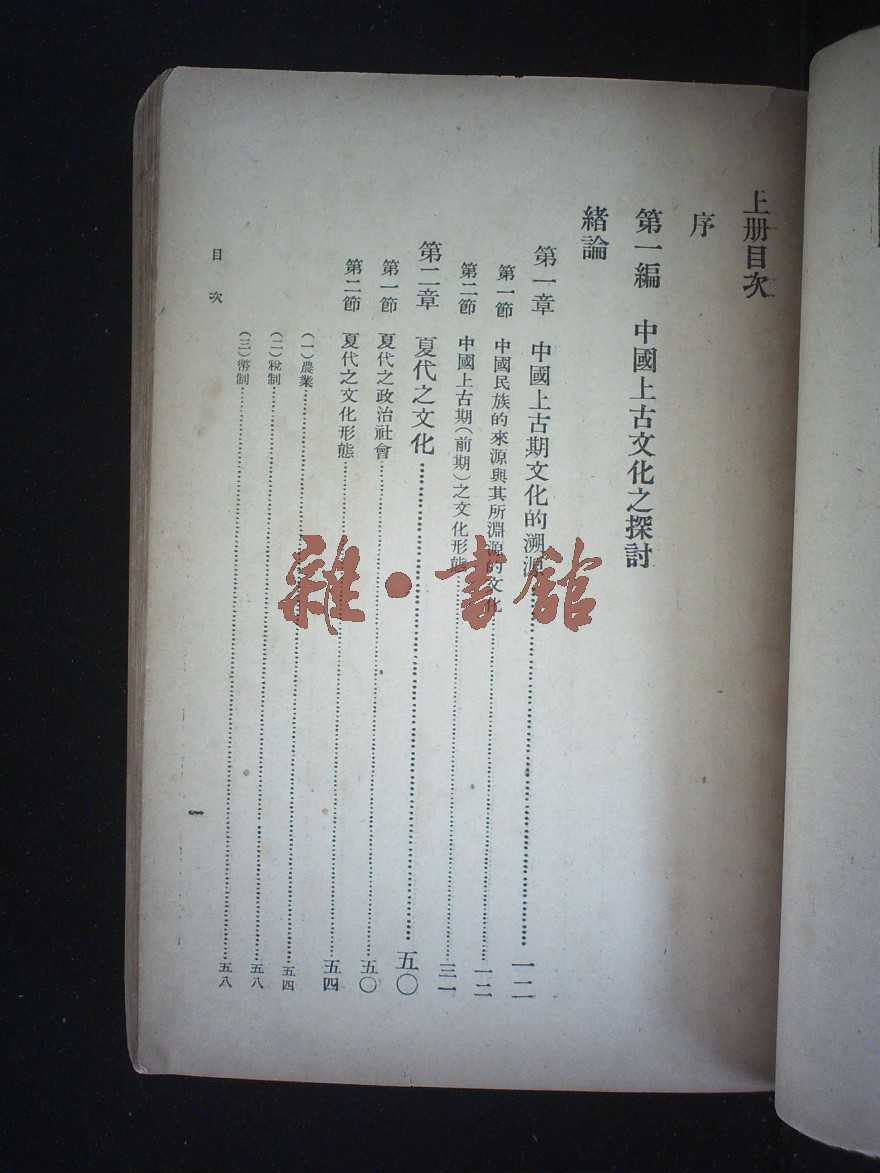 上册目次
序
第一編　中國上古文化之探討
緒論
第一章　中國上古期文化的溯源……一二
第一節　中國民族的來源與其所淵源的文化……一二
第二節　中國上古期（前期）之文化形態……三一
第二章　夏代之文化……五〇
第一節　夏代之政治社會……五〇
第二節　夏代之文化形態……五四
（一）農業……五四
（二）稅制……五八
（三）幣制……五八
目次
一
雜·書館